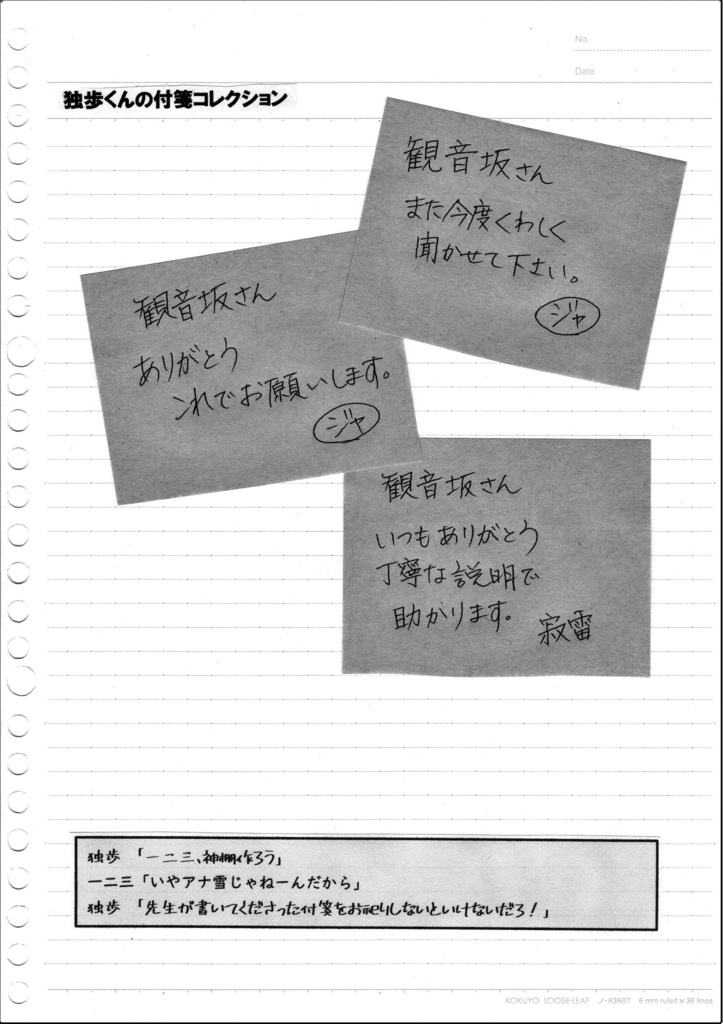 No.
Date
独歩くんの付箋コレクション
観音坂さん
また今度くわしく
聞かせて下さい。
ジャ
観音坂さん
ありがとう
これでお願いします。
ジャ
観音坂さん
いつもありがとう
丁寧な説明で
助かります。
寂雷
独歩 「一二三、神棚作ろう」
一二三「いやアナ雪じゃねーんだから」
独歩 「先生が書いてくださった付箋をお祀りしないといけないだろ!」
KOKUYO LOOSE-LEAF ノ-836BT 6 mm ruled×36 lines